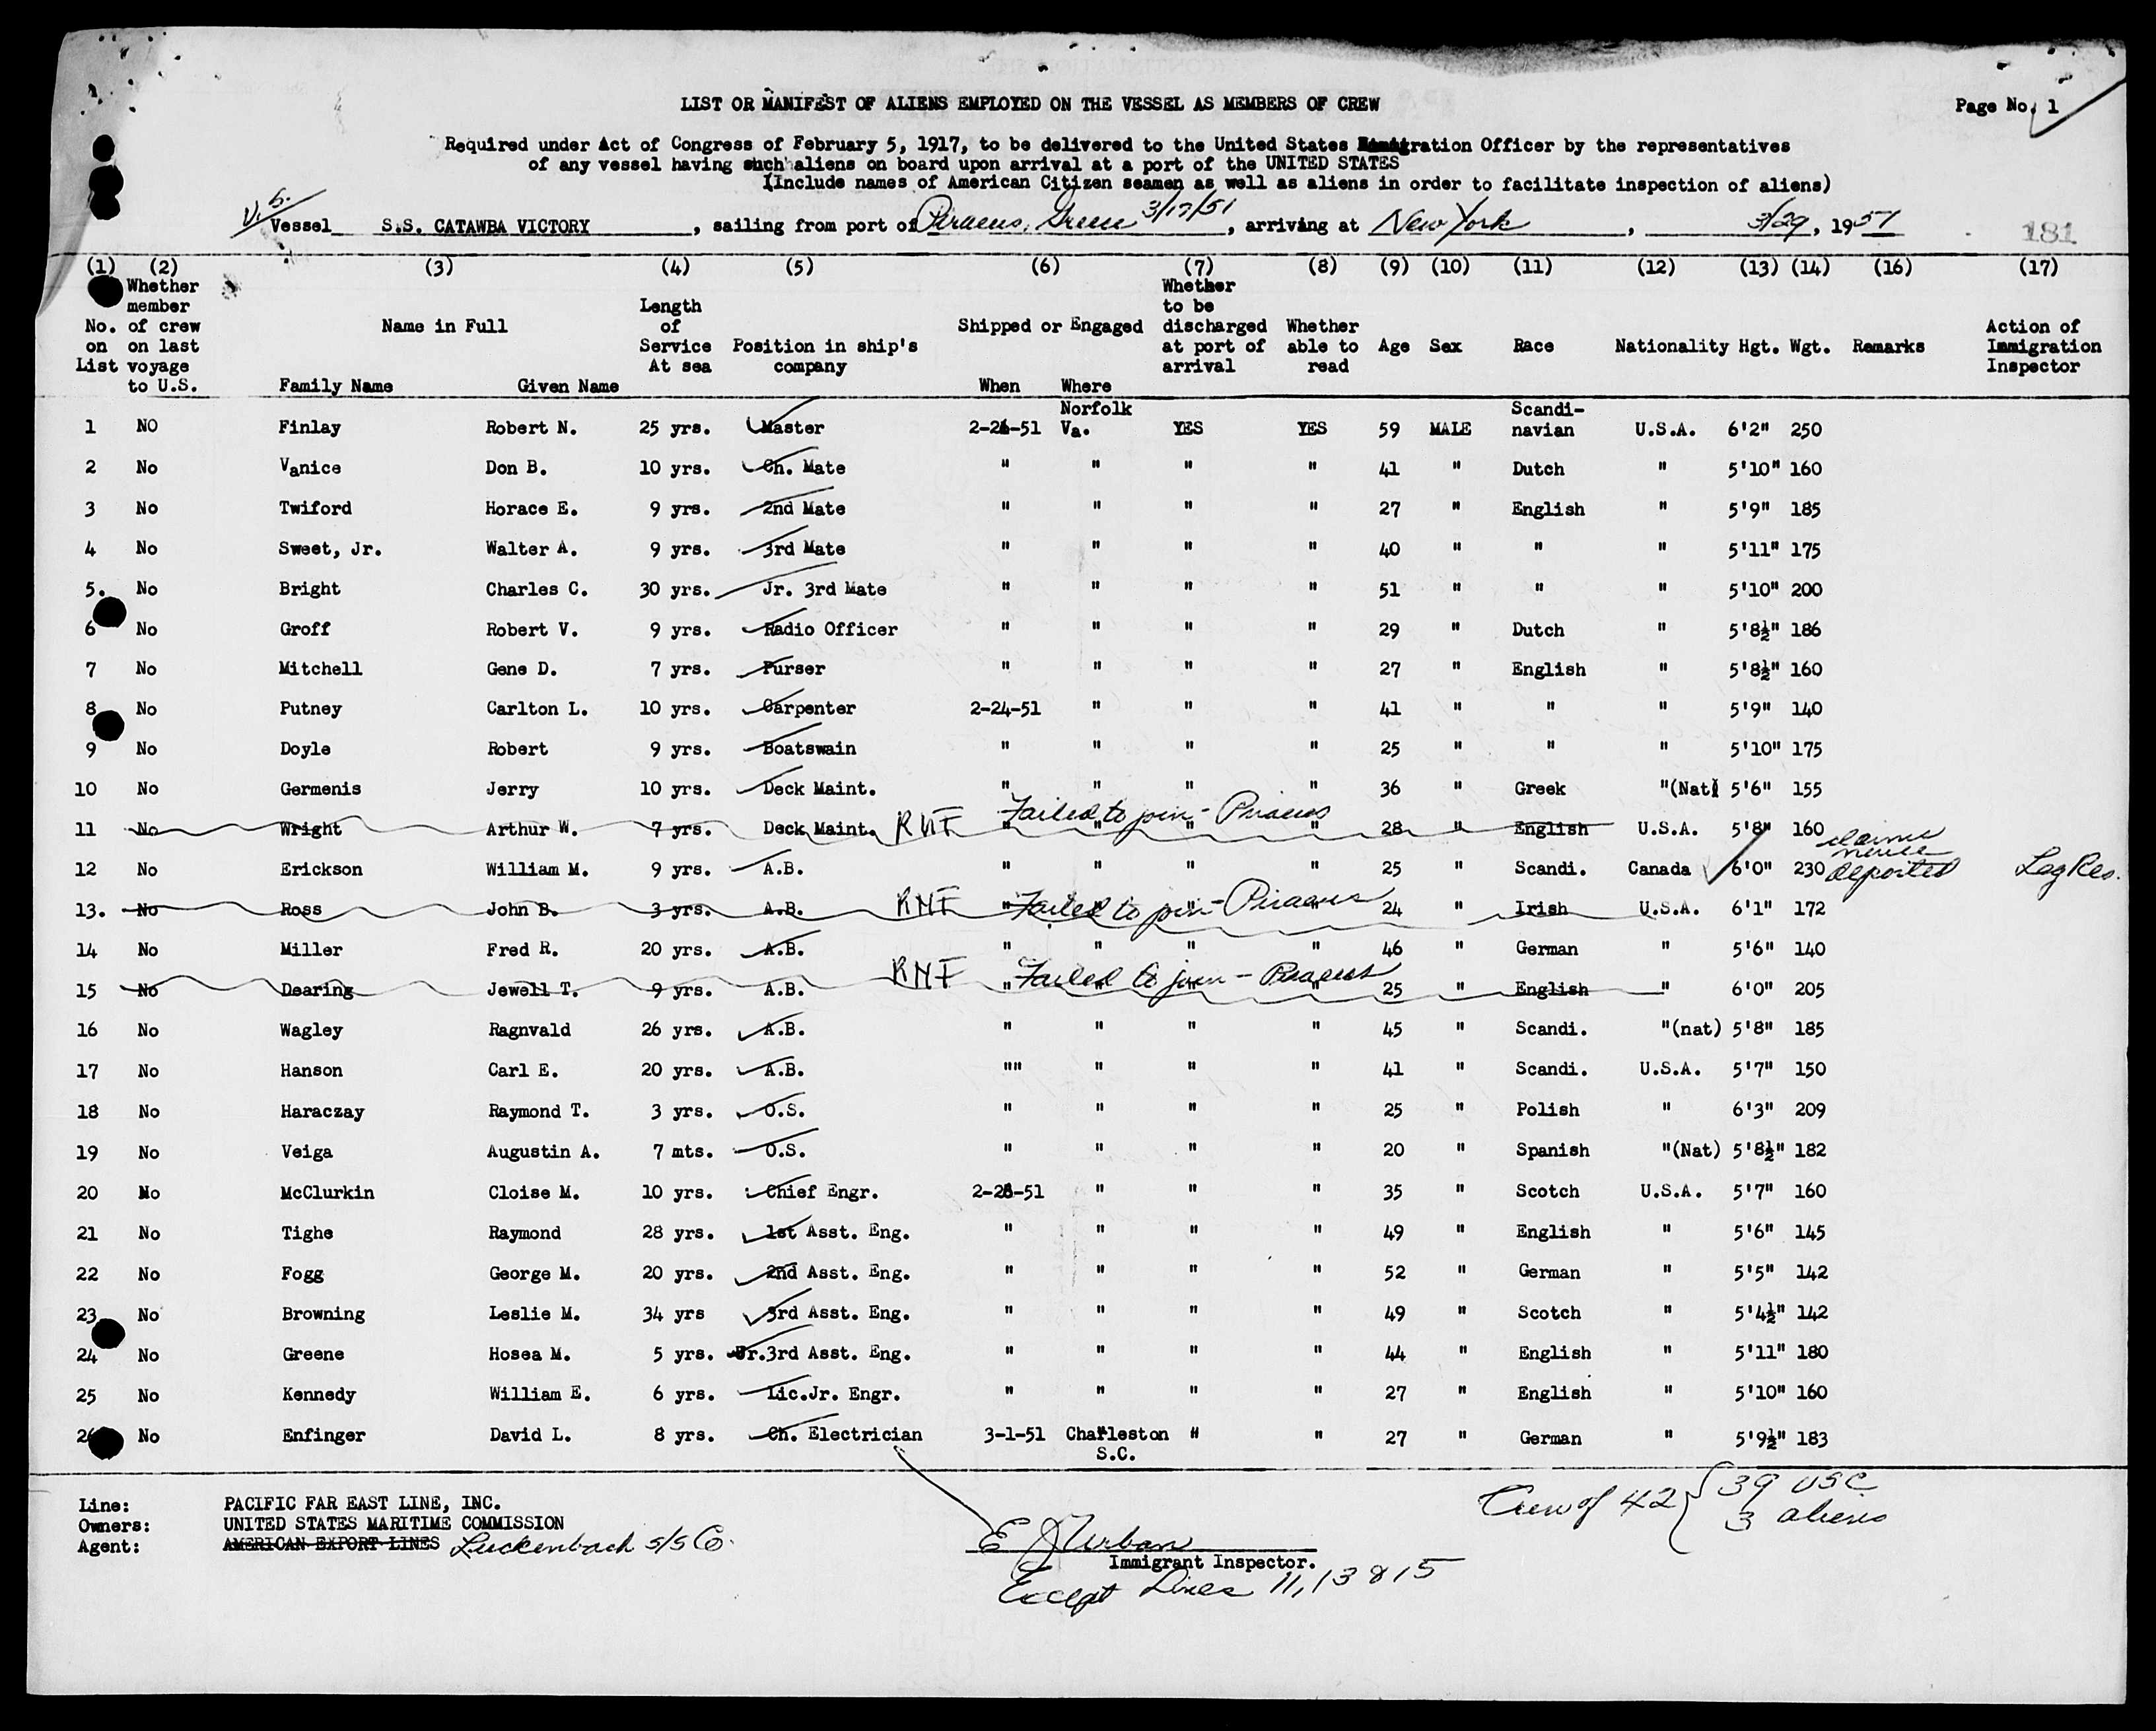 LIST OR MANIFEST OF ALIENS EMPLOYED ON THE VESSEL AS MEMBERS OF CREW
Page No. 1
Required under Act of Congress of February 5, 1917, to be delivered to the United States Immigration Officer by the representatives
of any vessel having such aliens on board upon arrival at a port of the UNITED STATES
(Include names of American Citizen seamen as well as aliens in order to facilitate inspection of aliens)
U.S.
Vessel S.S. CATAWBA VICTORY, sailing from port of Piraeus, Greece 3/17/51, arriving at New York, 3/29, 1951
181
(1) (2) (3) (4) (5) (6) (7) (8) (9) (10) (11) (12) (13) (14) (16) (17)
No. on List
Whether member of crew on last voyage to U.S.
Name in Full
Family Name Given Name
Length of Service At sea
Position in ship's company
Shipped or Engaged
When Where
Whether to be discharged at port of arrival
Whether able to read
Age Sex Race Nationality Hgt. Wgt. Remarks
Action of Immigration Inspector
1 NO Finlay Robert N. 25 yrs. Master 2-26-51 Norfolk Va. YES YES 59 MALE Scandi-navian U.S.A. 6'2" 250
2 No Vanice Don B. 10 yrs. Ch. Mate " " " " 41 " Dutch " 5'10" 160
3 No Twiford Horace E. 9 yrs. 2nd Mate " " " " 27 " English " 5'9" 185
4 No Sweet, Jr. Walter A. 9 yrs. 3rd Mate " " " " 40 " " " 5'11" 175
5. No Bright Charles C. 30 yrs. Jr. 3rd Mate " " " " 51 " " " 5'10" 200
6 No Groff Robert V. 9 yrs. Radio Officer " " " " 29 " Dutch " 5'8½" 186
7 No Mitchell Gene D. 7 yrs. Purser " " " " 27 " English " 5'8½" 160
8 No Putney Carlton L. 10 yrs. Carpenter 2-24-51 " " " 41 " " " 5'9" 140
9 No Doyle Robert 9 yrs. Boatswain " " " " 25 " " " 5'10" 175
10 No Germenis Jerry 10 yrs. Deck Maint. " " " " 36 " Greek "(Nat) 5'6" 155
11 No Wright Arthur W. 7 yrs. Deck Maint. RNF Failed to join - Piraeus " " " " 28 " English U.S.A. 5'8" 160
12 No Erickson William M. 9 yrs. A.B. " " " " 25 " Scandi. Canada 6'0" 230 claims never deported Leg Res.
13. No Ross John B. 3 yrs. A.B. RNF Failed to join - Piraeus " " " " 24 " Irish U.S.A. 6'1" 172
14 No Miller Fred R. 20 yrs. A.B. " " " " 46 " German " 5'6" 140
15 No Dearing Jewell T. 9 yrs. A.B. RNF Failed to join - Piraeus " " " " 25 " English " 6'0" 205
16 No Wagley Ragnvald 26 yrs. A.B. " " " " 45 " Scandi. "(nat) 5'8" 185
17 No Hanson Carl E. 20 yrs. A.B. "" " " " 41 " Scandi. U.S.A. 5'7" 150
18 No Haraczay Raymond T. 3 yrs. O.S. " " " " 25 " Polish " 6'3" 209
19 No Veiga Augustin A. 7 mts. O.S. " " " " 20 " Spanish "(Nat) 5'8½" 182
20 No McClurkin Cloise M. 10 yrs. Chief Engr. 2-26-51 " " " 35 " Scotch U.S.A. 5'7" 160
21 No Tighe Raymond 28 yrs. 1st Asst. Eng. " " " " 49 " English " 5'6" 145
22 No Fogg George M. 20 yrs. 2nd Asst. Eng. " " " " 52 " German " 5'5" 142
23 No Browning Leslie M. 34 yrs 3rd Asst. Eng. " " " " 49 " Scotch " 5'4½" 142
24 No Greene Hosea M. 5 yrs. Jr.3rd Asst. Eng. " " " " 44 " English " 5'11" 180
25 No Kennedy William E. 6 yrs. Lic.Jr. Engr. " " " " 27 " English " 5'10" 160
26 No Enfinger David L. 8 yrs. Ch. Electrician 3-1-51 Charleston S.C. " " 27 " German " 5'9½" 183
Line: PACIFIC FAR EAST LINE, INC.
Owners: UNITED STATES MARITIME COMMISSION
Agent: AMERICAN EXPORT LINES Luckenbach S/S Co.
E J Urban
Immigrant Inspector.
Except Lines 11, 13 & 15
Crew of 42 { 39 USC
3 aliens